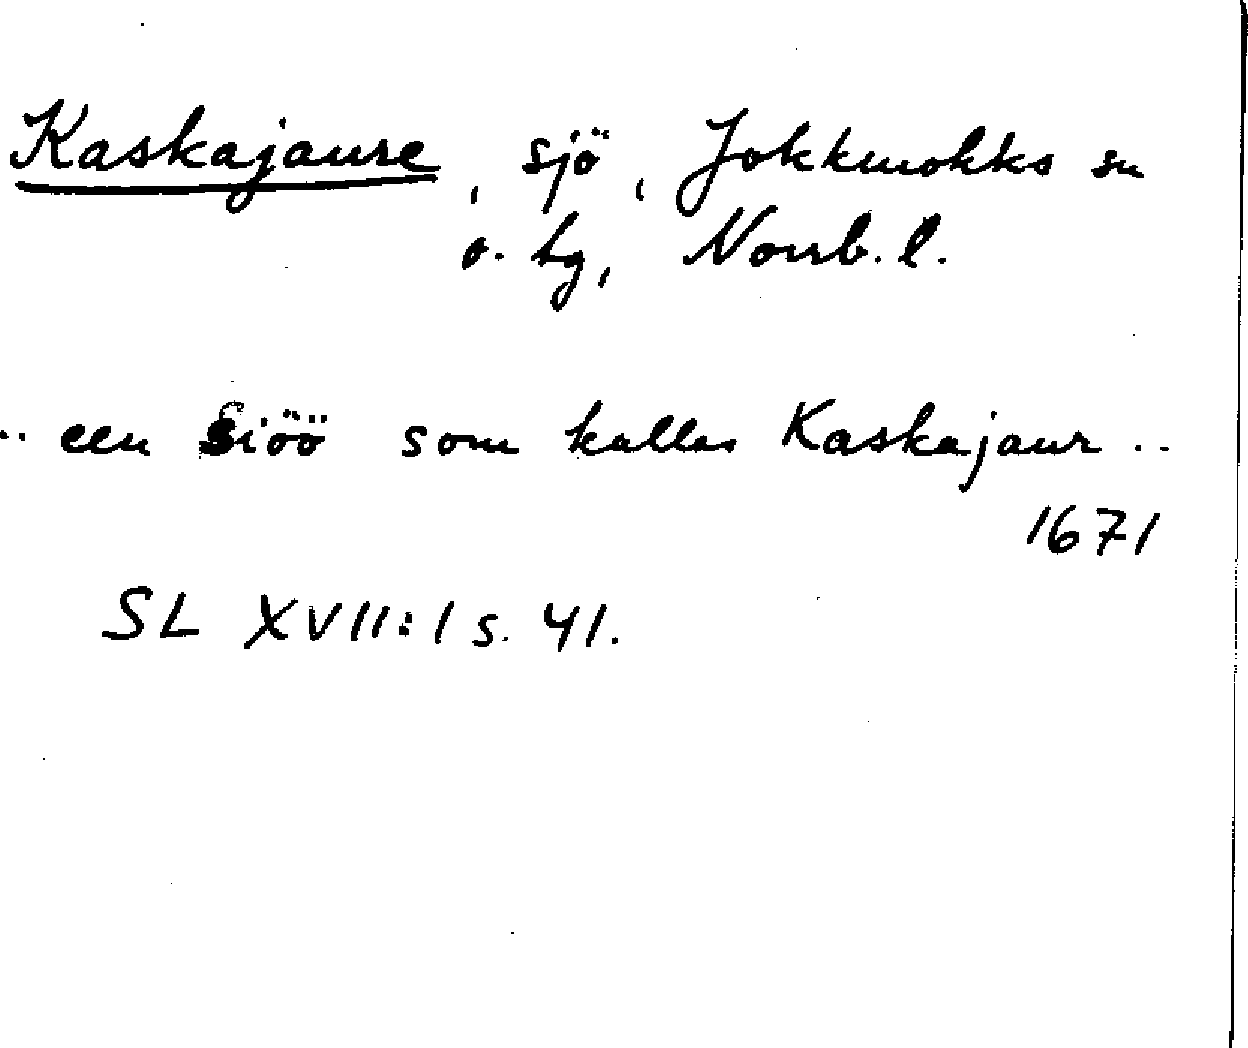 Kaskajaure, sjö, Jokkmokks sn
o. tg, Norrb. l.
.. een Siöö som kallas Kaskajaur ..
1671
SL XVII:1 s. 41.